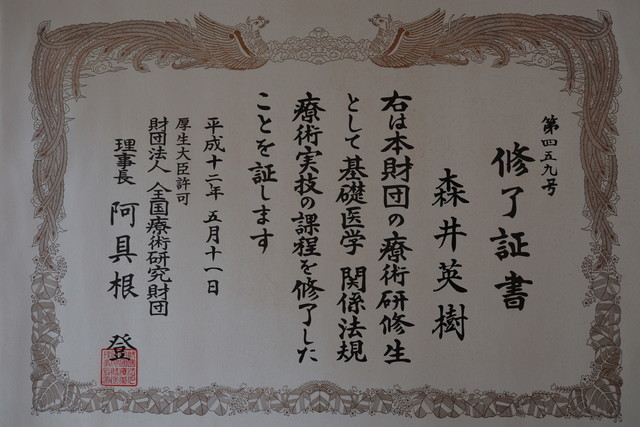 第四五九号
修了証書
森井英樹
右は本財団の療術研修生
として基礎医学 関係法規
療術実技の課程を修了した
ことを証します
平成十二年 五月十一日
厚生大臣許可
財団法人 全国療術研究財団
理事長 阿具根 登